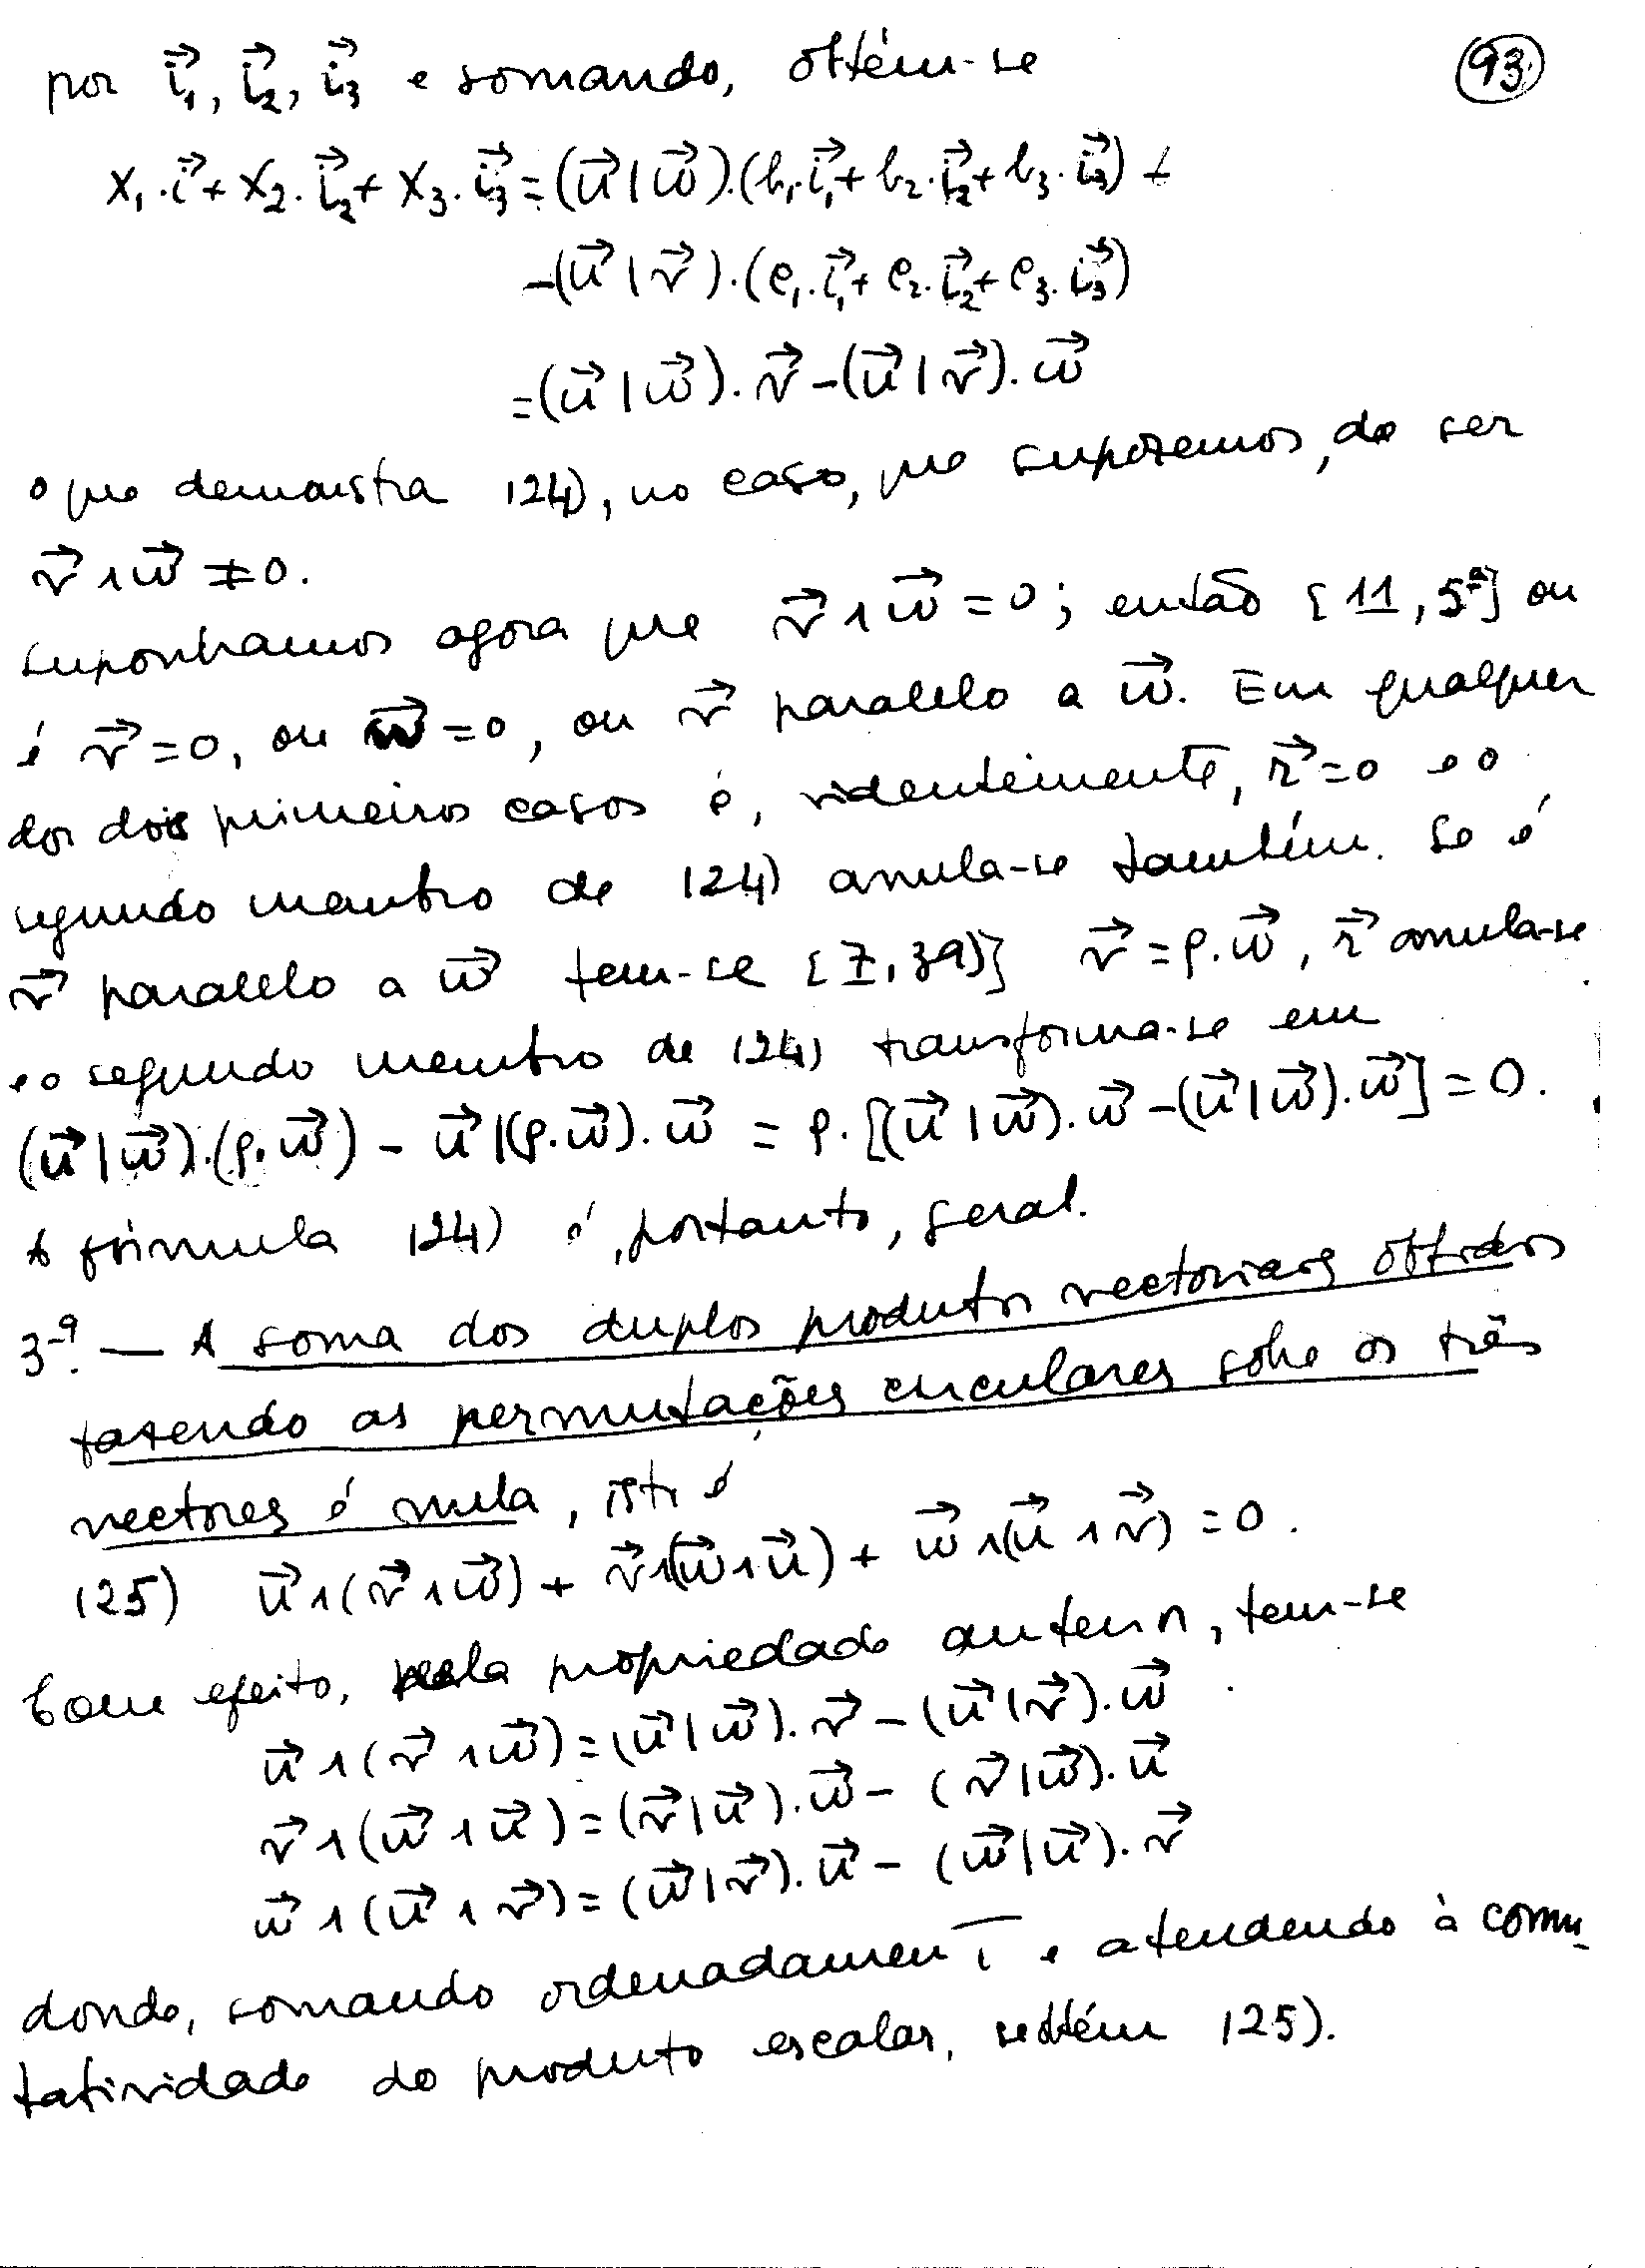 93.
por i⃗₁, i⃗₂, i⃗₃ e somando, obtém-se
X₁.i⃗ + X₂.i⃗₂ + X₃.i⃗₃ = (u⃗ | w⃗).(b₁.i⃗₁ + b₂.i⃗₂ + b₃.i⃗₃) +
-(u⃗ | v⃗).(c₁.i⃗₁ + c₂.i⃗₂ + c₃.i⃗₃)
= (u⃗ | w⃗).v⃗ - (u⃗ | v⃗).w⃗
o que demonstra 124), no caso, que supozemos, de ser
v⃗ ∧ w⃗ ≠ 0.
suponhamos agora que v⃗ ∧ w⃗ = 0; então [11, 5ª] ou
é v⃗ = 0, ou w⃗ = 0, ou v⃗ paralelo a w⃗. Em qualquer
dos dois primeiros casos é, videntemente, r⃗ = 0 e o
segundo membro de 124) anula-se também. Se é
v⃗ paralelo a w⃗ tem-se [7, 39)] v⃗ = ρ.w⃗, r⃗ anula-se
e o segundo membro de 124) transforma-se em
(u⃗ | w⃗).(ρ.w⃗) - u⃗ |(ρ.w⃗).w⃗ = ρ.[(u⃗ | w⃗).w⃗ - (u⃗ | w⃗).w⃗] = 0.
A fórmula 124) é, portanto, geral.
3ª. — A soma dos duplos produtos vectoriais obtidos
fazendo as permutações circulares sobre os três
vectores é nula, isto é
125) u⃗ ∧ (v⃗ ∧ w⃗) + v⃗ ∧ (w⃗ ∧ u⃗) + w⃗ ∧ (u⃗ ∧ v⃗) = 0.
Com efeito, pela propriedade anterior, tem-se
u⃗ ∧ (v⃗ ∧ w⃗) = (u⃗ | w⃗).v⃗ - (u⃗ | v⃗).w⃗
v⃗ ∧ (w⃗ ∧ u⃗) = (v⃗ | u⃗).w⃗ - (v⃗ | w⃗).u⃗
w⃗ ∧ (u⃗ ∧ v⃗) = (w⃗ | v⃗).u⃗ - (w⃗ | u⃗).v⃗
donde, somando ordenadamente e atendendo à comu-
tatividade do produto escalar, se obtém 125).